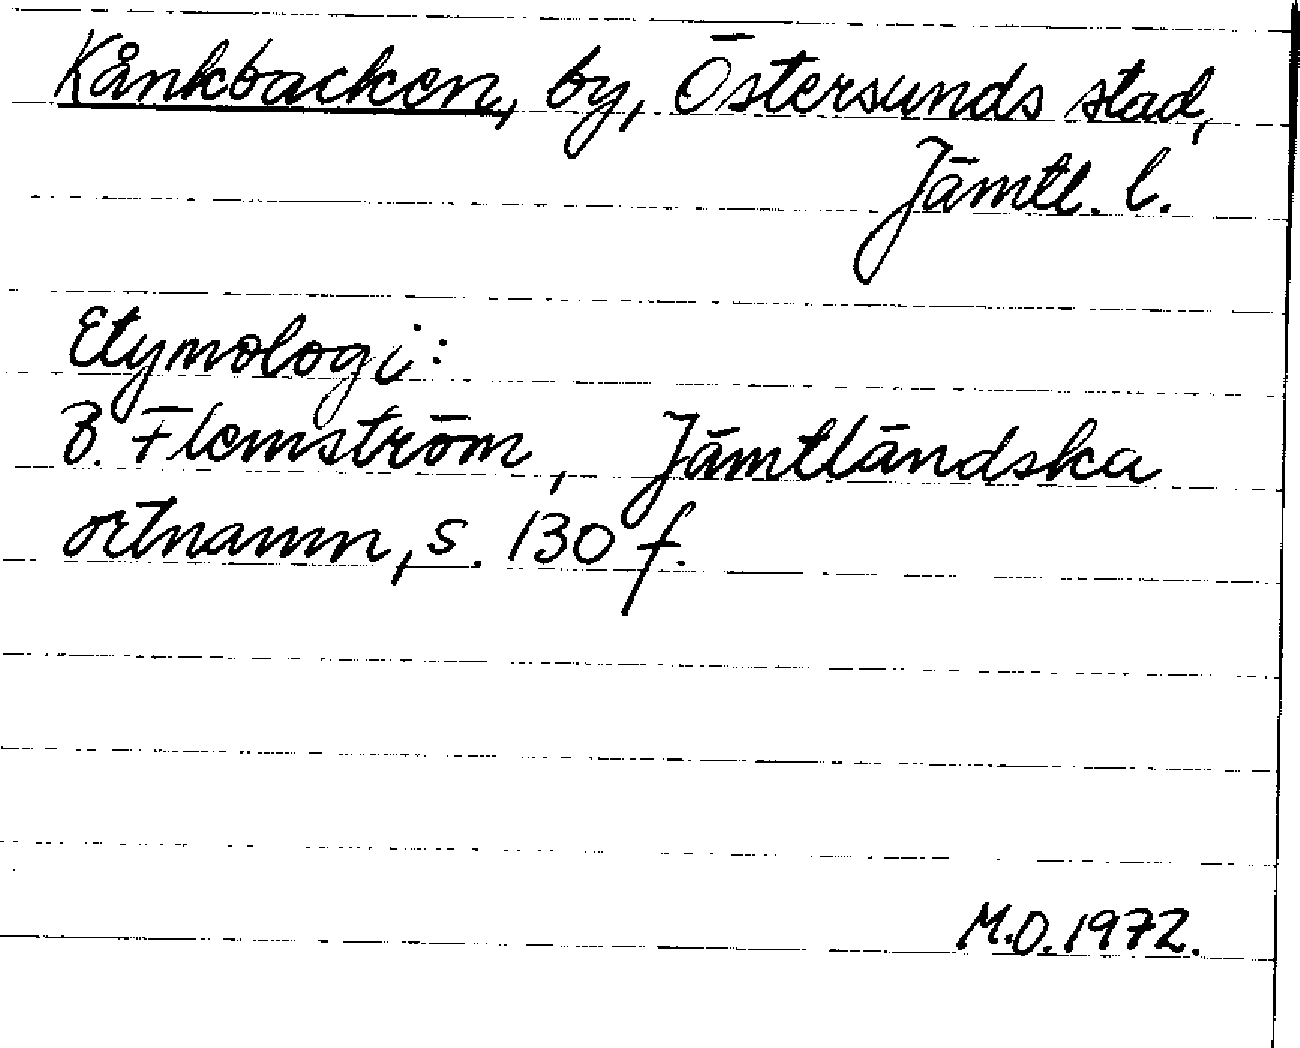 Kånkbacken, by, Östersunds stad,
Jämtl. l.
Etymologi:
B. Flemström, Jämtländska
ortnamn, s. 130 f.
M.O. 1972.